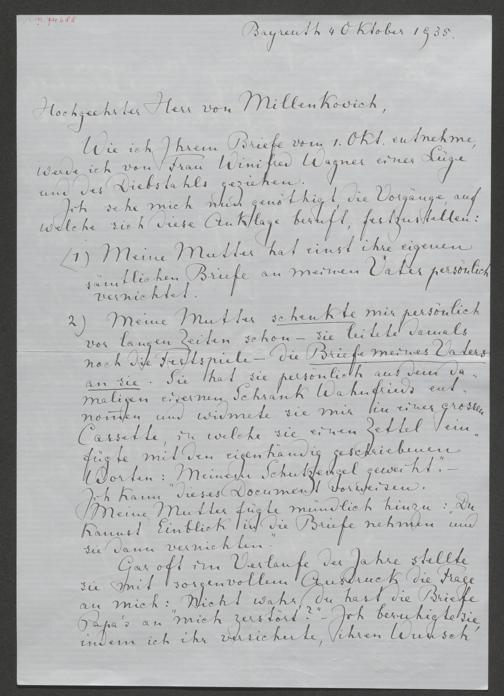 Bayreuth 4 Oktober 1935.
Hochgeehrter Herr von Millenkovich,
Wie ich Ihrem Briefe vom 1. Okt. entnehme,
werde ich von Frau Winifred Wagner einer Lüge
und des Diebstahls geziehen.
Ich sehe mich nun genöthigt, die Vorgänge, auf
welche sich diese Anklage beruft, festzustellen:
(1) Meine Mutter hat einst ihre eigenen
sämtlichen Briefe an meinen Vater persönlich
vernichtet.
2) Meine Mutter schenkte mir persönlich
vor langen Zeiten schon – sie leitete damals
noch die Festspiele – die Briefe meines Vaters
an sie. Sie hat sie persönlich aus dem da-
maligen eisernen Schrank Wahnfrieds ent-
nommen und widmete sie mir in einer grossen
Cassette, in welche sie einen Zettel ein-
fügte mit den eigenhändig geschriebenen
Worten: "Meinem Schutzengel geweiht." –
Ich kann dieses Document vorweisen.
Meine Mutter fügte mündlich hinzu: "Du
kannst Einblick in die Briefe nehmen und
sie dann vernichten."
Gar oft im Verlaufe der Jahre stellte
sie mit sorgenvollem Ausdruck die Frage
an mich: "Nicht wahr, du hast die Briefe
Papa's an mich zerstört?" – Ich beruhigte sie,
indem ich ihr versicherte, ihren Wunsch